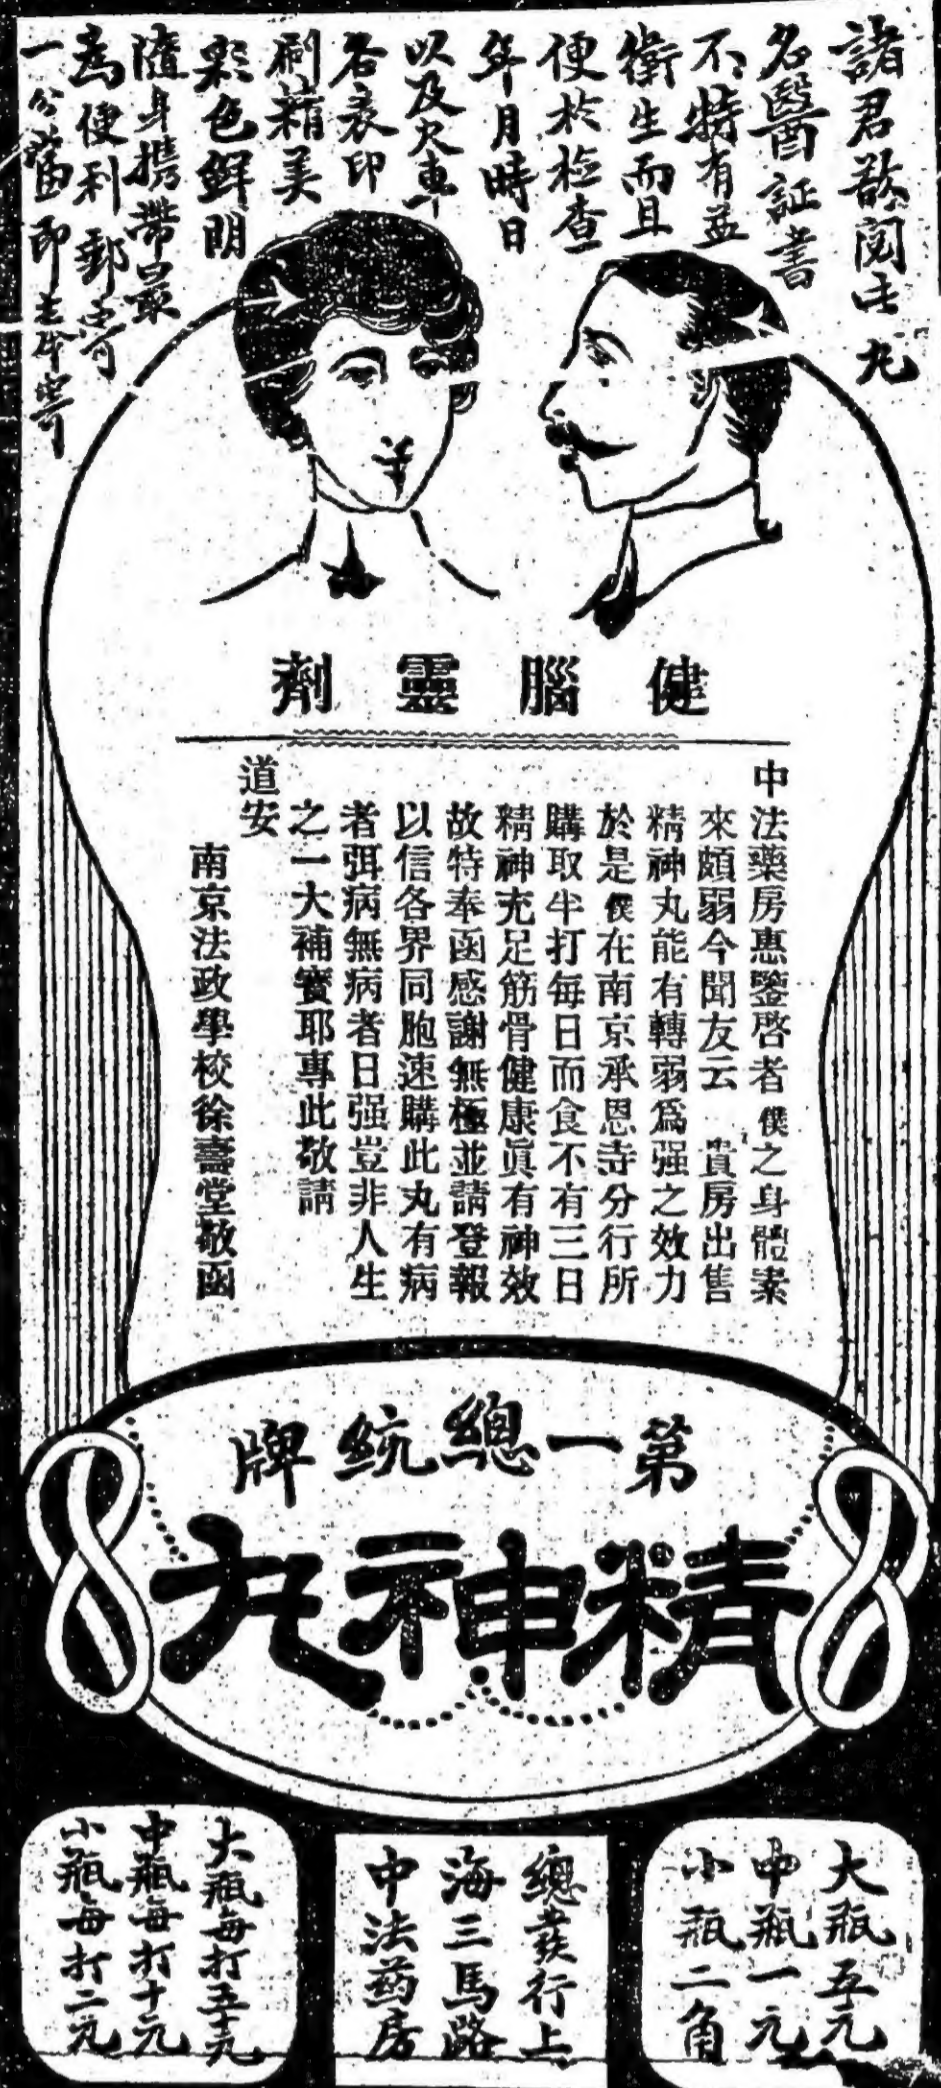 諸君欲閱此丸
名醫証書
不特有益
衛生而且
便於檢查
年月時日
以及火車
各表印
刷精美
彩色鮮明
隨身攜帶最
為便利郵寄
一分當即奉寄
健腦靈劑
中法藥房惠鑒啓者僕之身體素
來頗弱今聞友云 貴房出售
精神丸能有轉弱爲强之效力
於是僕在南京承恩寺分行所
購取半打每日而食不有三日
精神充足筋骨健康眞有神效
故特奉函感謝無極並請登報
以信各界同胞速購此丸有病
者弭病無病者日强豈非人生
之一大補寳耶專此敬請
道安
南京法政學校徐壽堂敬函
第一總統牌
精神丸
大瓶五元
中瓶一元
小瓶二角
總發行上
海三馬路
中法药房
大瓶每打五十元
中瓶每打十元
小瓶每打二元